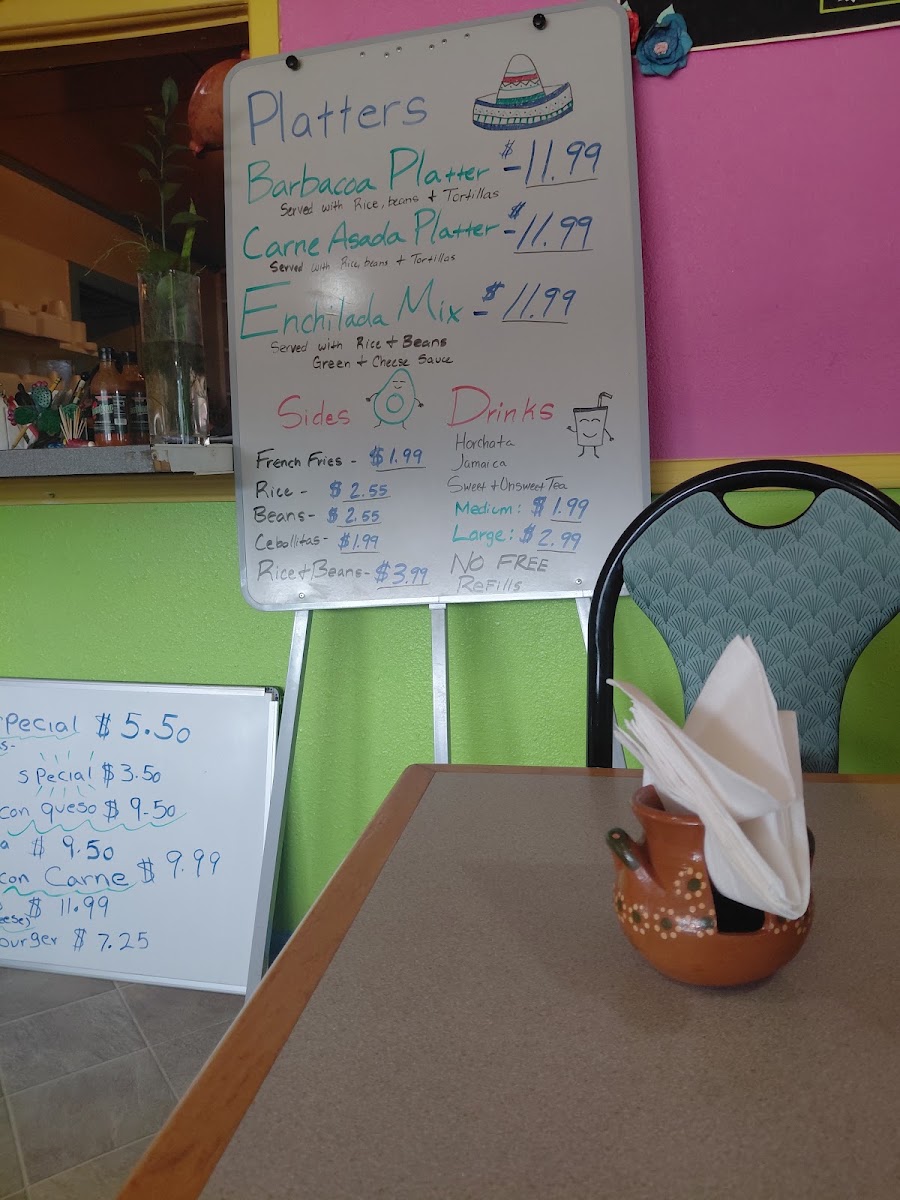 Platters
Barbacoa Platter - $11.99
Served with Rice, beans + Tortillas
Carne Asada Platter - $11.99
Served with Rice, beans + Tortillas
Enchilada Mix - $11.99
Served with Rice + Beans
Green + Cheese Sauce
Sides
French Fries - $1.99
Rice - $2.55
Beans - $2.55
Cebollitas - $1.99
Rice + Beans - $3.99
Drinks
Horchata
Jamaica
Sweet + Unsweet Tea
Medium: $1.99
Large: $2.99
NO FREE
Refills
special $5.50
special $3.50
con queso $9.50
a $9.50
con Carne $9.99
$11.99
burger $7.25